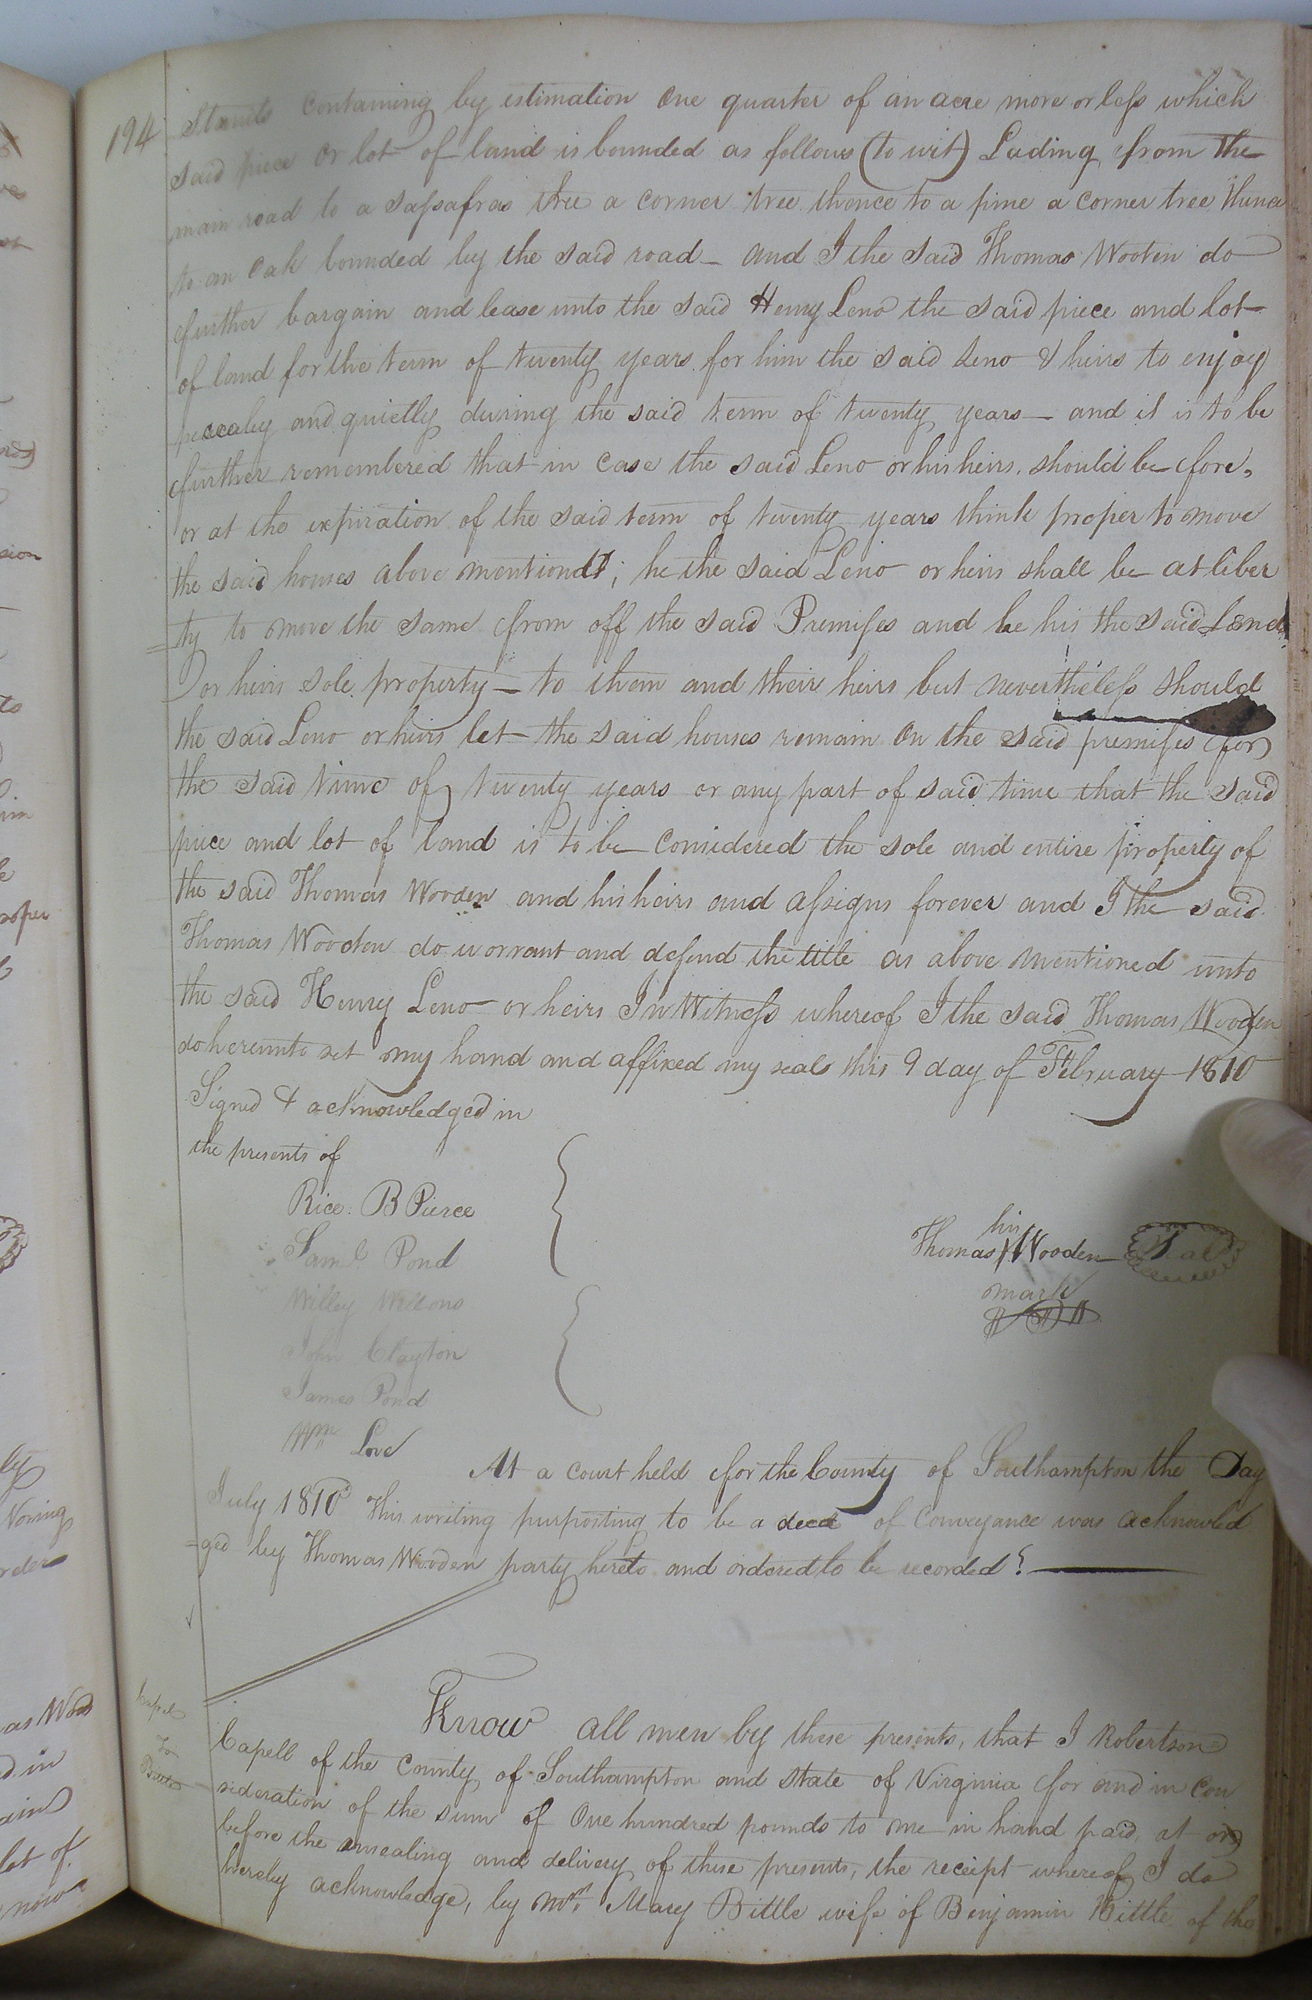 194
Stands containing by estimation one quarter of an acre more or less which
said piece or lot of land is bounded as follows (to wit) Lading from the
main road to a sassafras tree a corner tree thence to a pine a corner tree thence
to an oak bounded by the said road - and I the said Thomas Wooten do
further bargain and lease unto the said Henry Leno the said piece and lot
of land for the term of twenty years for him the said Leno & heirs to enjoy
peacabey and quietly during the said term of twenty years - and it is to be
further remembered that in case the said Leno or his heirs should be fore,
or at the expiration of the said term of twenty years think proper to move
the said houses above mentiond; he the said Leno or heirs shall be at liber
ty to move the same from off the said Premises and be his the said
or heirs sole property - to them and their heirs but nevertheless should
the said Leno or heirs let the said houses remain on the said premises for
the said time of twenty years or any part of said time that the said
piece and lot of land is to be considered the sole and entire property of
the said Thomas Wooden and his heirs and assigns forever and I the said
Thomas Wooden do warrant and defend the title as above mentioned unto
the said Henry Leno or heirs In Witness whereof I the said Thomas Wooden
do hereunto set my hand and affixed my seal this 9 day of February 1810
Signed & acknowledged in
the presents of
Rice. B Pierce
Saml Pond
Willey Willons
John Clayton
James Pond
Wm Love
his
Thomas X Wooden Seal
mark
At a court held for the County of Southampton the Day
July 1810 This writing purposting to be a deed of Conveyance was acknowled
ged by Thomas Wooden party hereto and ordered to be recorded
Capel
to
Bittle
Know all men by these presents, that I Robertson
Capell of the County of Southampton and State of Virginia for and in con
sideration of the sum of One hundred pounds to me in hand paid, at or
before the ensealing and delivery of these presents, the receipt whereof I do
hereby acknowledge, by Mrs. Mary Bittle wife of Benjamin Bittle of the